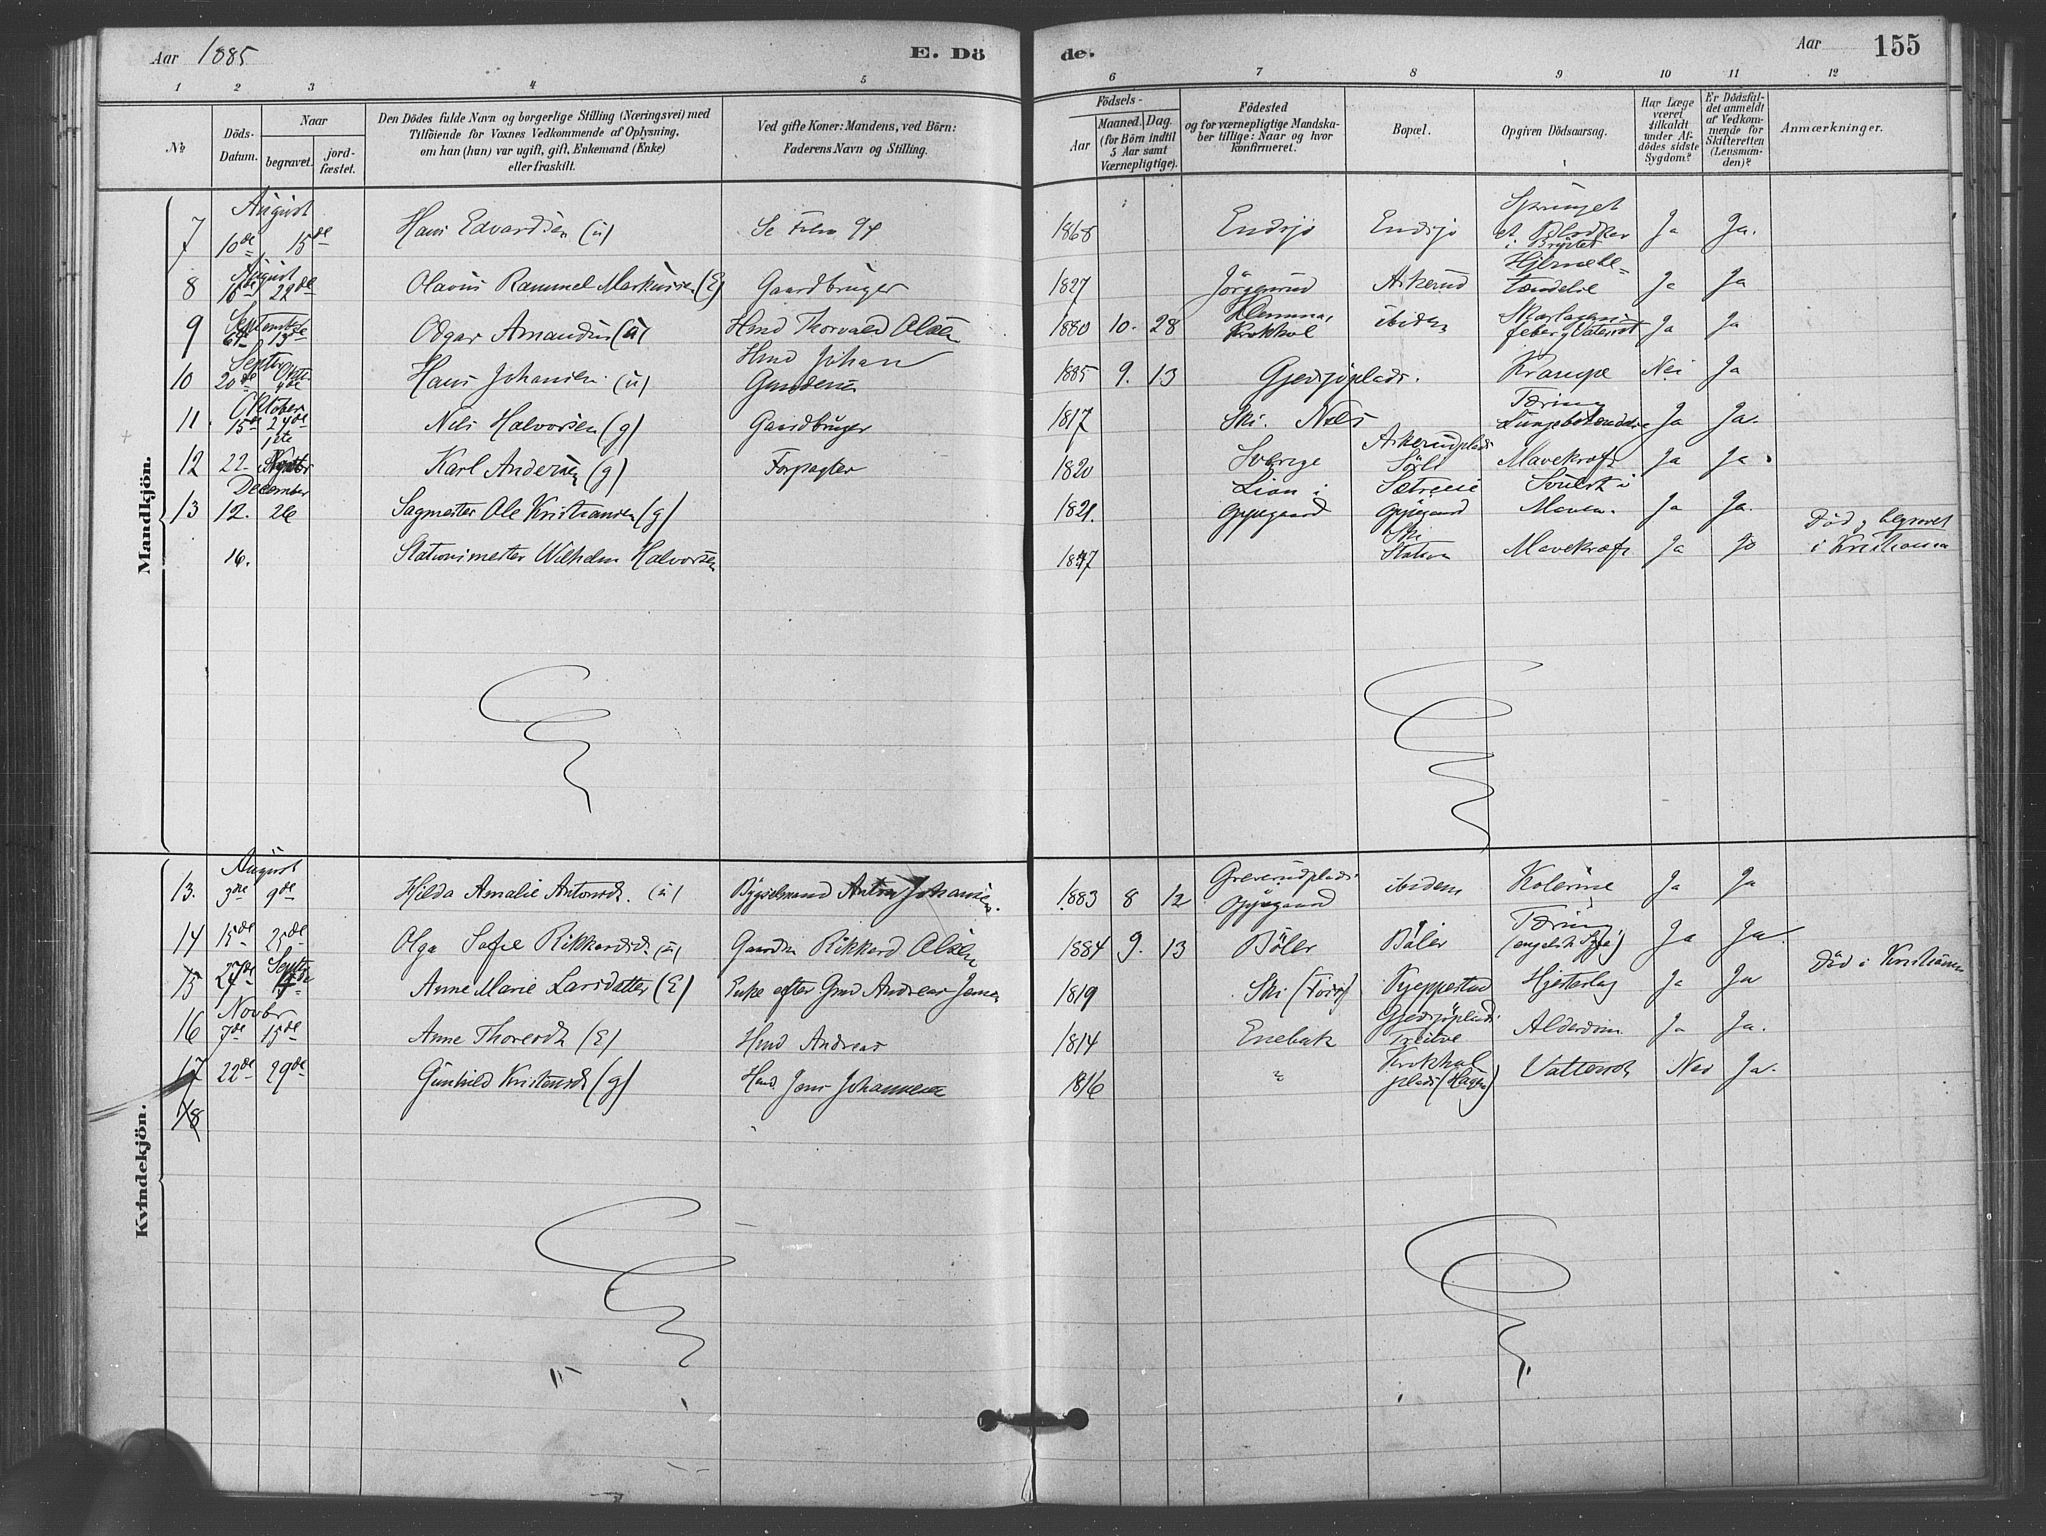 Aar 1885
E. Dö
de.
Aar
155
1 2 3 4 5 6 7 8 9 10 11 12
№
Döds-Datum.
Naar
begravet.
jord-fæstet.
Den Dödes fulde Navn og borgerlige Stilling (Næringsvei) med
Tilföiende for Voxnes Vedkommende af Oplysning,
om han (hun) var ugift, gift, Enkemand (Enke)
eller fraskilt.
Ved gifte Koner: Mandens, ved Börn:
Faderens Navn og Stilling.
Födsels-
Aar
Maaned. Dag.
(for Börn indtil
5 Aar samt
Værnepligtige).
Födested
og for værnepligtige Mandska-
ber tillige: Naar og hvor
konfirmeret.
Bopæl.
Opgiven Dödsaarsag.
Har Læge
været
tilkaldt
under Af-
dödes sidste
Sygdom?
Er Dödsfal-
det anmeldt
af Vedkom-
mende for
Skifteretten
(Lensman-
den)?
Anmærkninger.
Mandkjön.
August
7 10de 15de Hans Edvardsen (u) Se 94 1868 Endsjø Endsjø Sprunget et Blodkar i Brystet Ja Ja.
August
8 16de 22de Olavus Rammel Markussen (E) Gaardbruger 1827 Jörgenrud Askerud Hjernebe-tændelse Ja Ja
September
9 6te 13de Odgar Amandus (u) Hmd Thorvald Olsen 1880 10. 28 Krokhol ibidem Skarlagensfeber og Vatersot Ja Ja
Septbr
10 20de Octbr 4de Hans Johansen (u) Hmd Johan Gundersen 1885 9. 13 Gjedsjöplads. Krampe Nei Ja
Oktober
11. 15de 24de Nils Halvorsen (g) Gaardbruger 1817 Ski. Tæring Ja Ja.
12 22. 1ste Novbr Karl Andersen (g) Forpagter 1820 Sverige Askerudplads Mavekræft Ja Ja.
December
13 12. 26 Sagmester Ole Kristiansen (g) 1821. Lian i Oppegaard Sætreeie Oppegaard Svulst i Maven. Ja Ja.
16. Stationsmester Wilhelm Halvorsen 1847 Ski Station Mavekræft Ja Ja Död og begravet i Kristiania
Kvindekjön.
August
13. 3de 9de Hilda Amalie Antonsdt. (u) Bygselmand Anton Johansen. 1883 8 12 Greverudplads Oppegaard ibidem Kolerine Ja Ja
14 15de 25de Olga Sofie Rikkardsdt. (u) Gaardm Rikkard Olsen 1884 9. 13 Böler Böler Tæring (engelsk Syge) Ja Ja.
15 27de Septbr Anne Marie Larsdatter (E) Enke efter Gmd Andreas Jensen 1819 Ski Kjeppestad Hjerteslag Ja Ja Död i Kristiania
Novbr
16 7de 15de Anne Thoresdt (E) Hmd Andreas 1814 Enebak Gjedsjöplads Alderdom. Ja Ja.
17 22de 29de Gunhild Kristensdt (g) Hmd Jens Johannesen 1816 " Krokhol plads (Hagen) Vattersot Nei Ja.
18